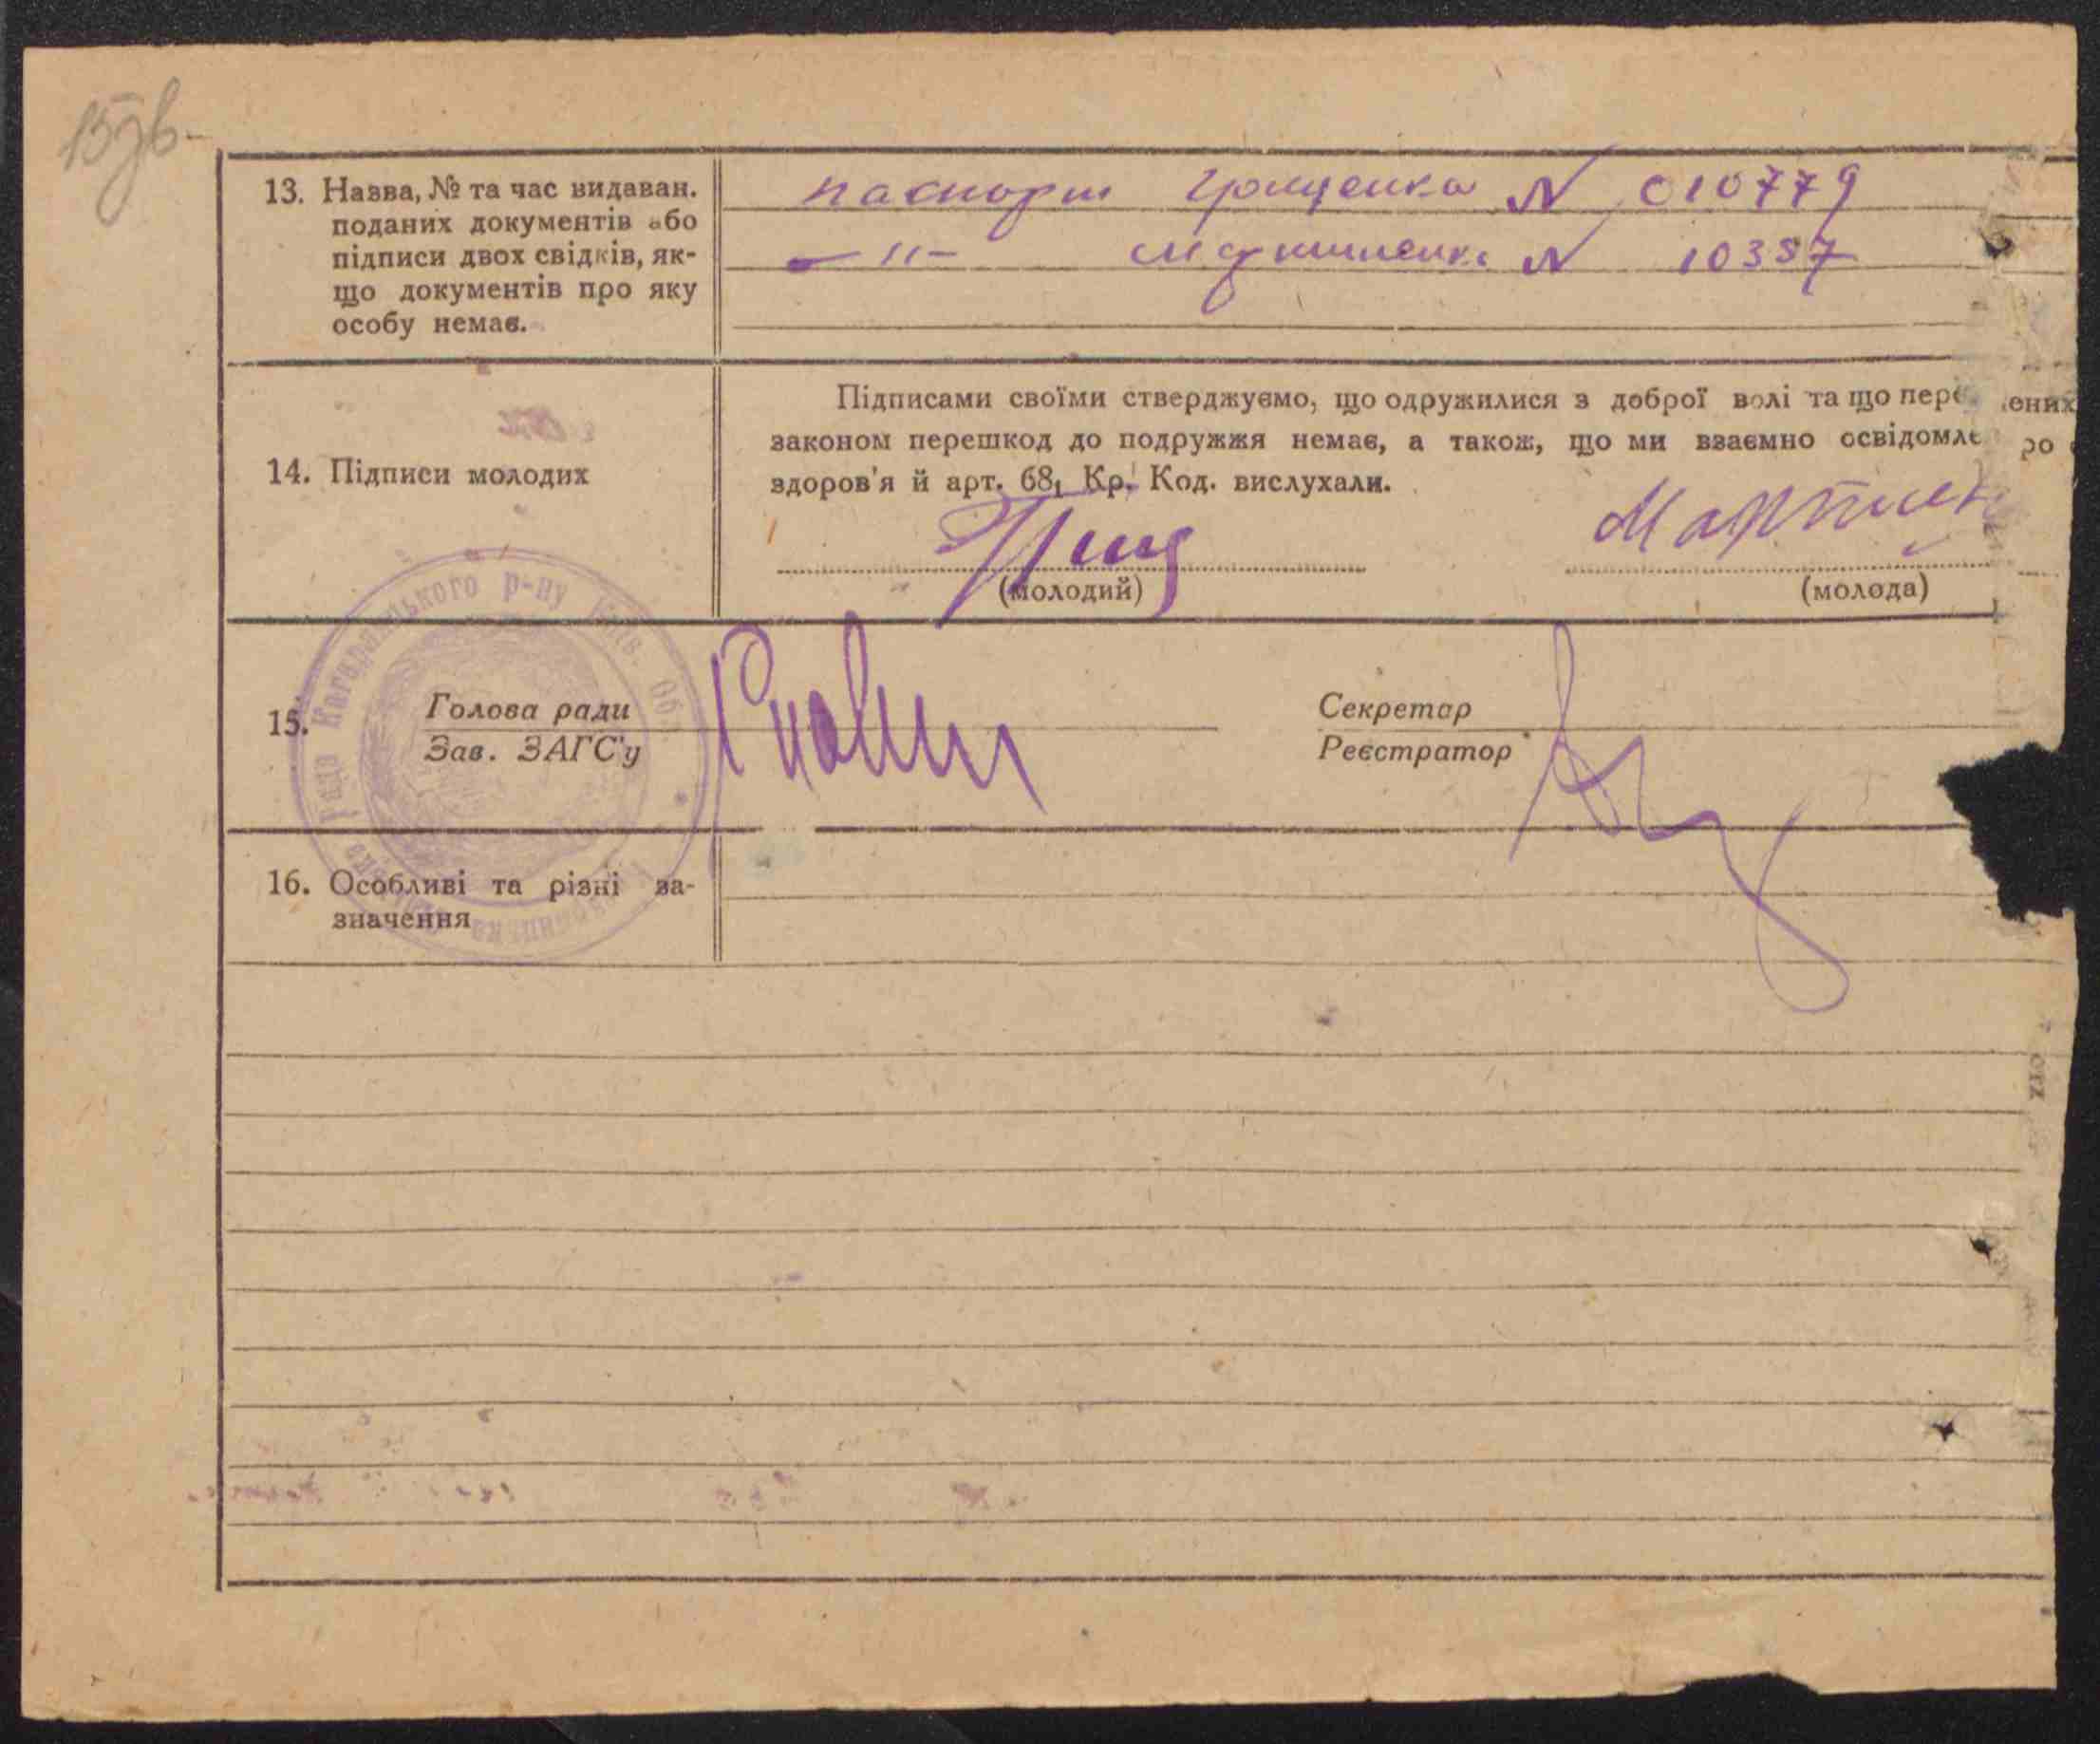 13. Назва, № та час видаван.
поданих документів або
підписи двох свідків, як-
що документів про яку
особу немає.
паспорт Грищенка N 010779
— 〃 — Мартиненко N 10387
14. Підписи молодих
Підписами своїми стверджуємо, що одружилися з доброї волі та що пере ених
законом перешкод до подружжя немає, а також, що ми взаємно освідомле ро
здоров'я й арт. 68₁ Кр. Код. вислухали.
Грищ Мартинен
(молодий) (молода)
15. Голова ради
Зав. ЗАГС'у
Секретар
Реєстратор
16. Особливі та різні за-
значення
Рада Кагарлицького р-ну Київ. Обл.